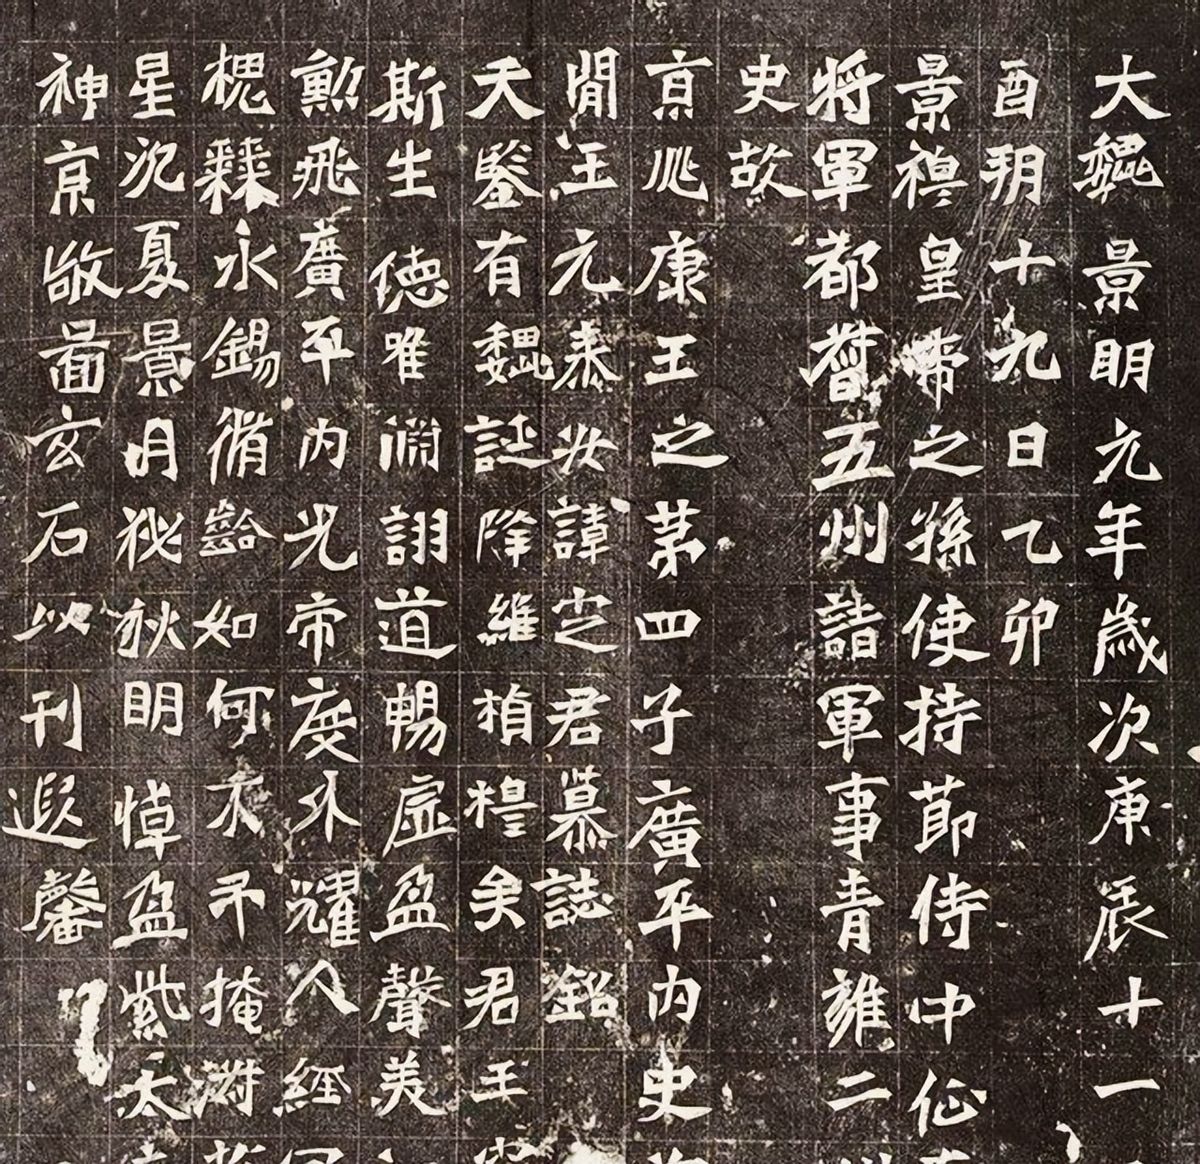 大魏景明元年歲次庚辰十一
酉朔十九日乙卯
景穆皇帝之孫使持節侍中征
將軍都督五州諸軍事青雍二
史故
京兆康王之第四子廣平內史
閒王元泰安諱定君慕誌銘
天鑒有魏誕降維楨糧矣君王
斯生德唯淵詡道暢虛盈聲美
勲飛廣平內光帝度外耀人經
槐棘永錫脩齡如何不弔掩
星沉夏景月秘秋明悼盈紫天
神京敬圖玄石以刊遐馨